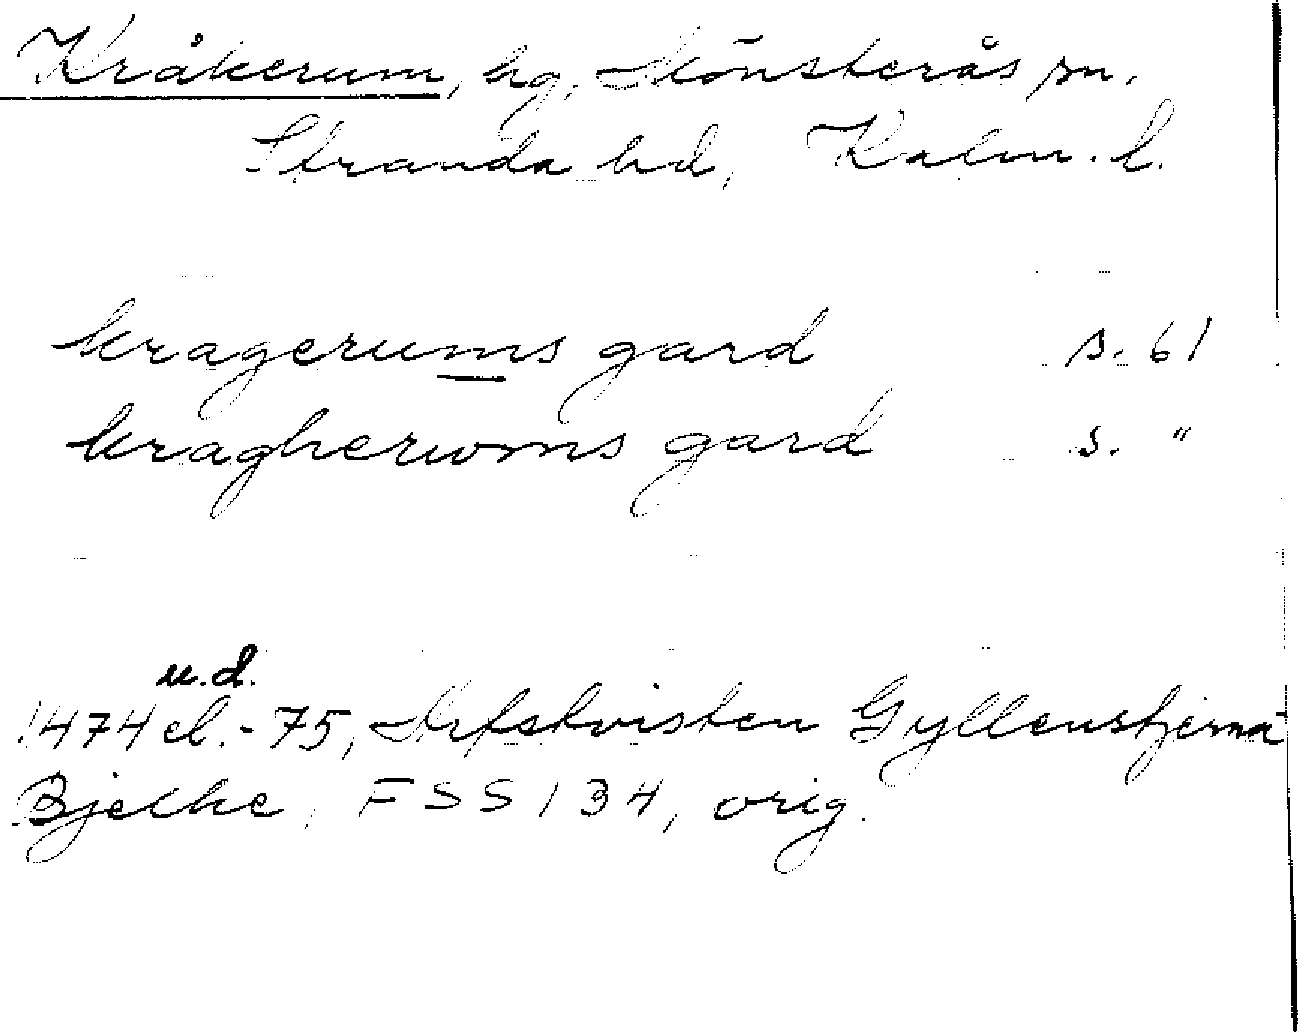 Kråkerum, hg, Mönsterås sn.
Stranda hd, Kalm. l.
kragerums gard s. 61
kragherwms gard s. "
u.d.
1474 el. -75, Arfstvisten Gyllenstjerna-
Bjelke, FSS 134, orig.